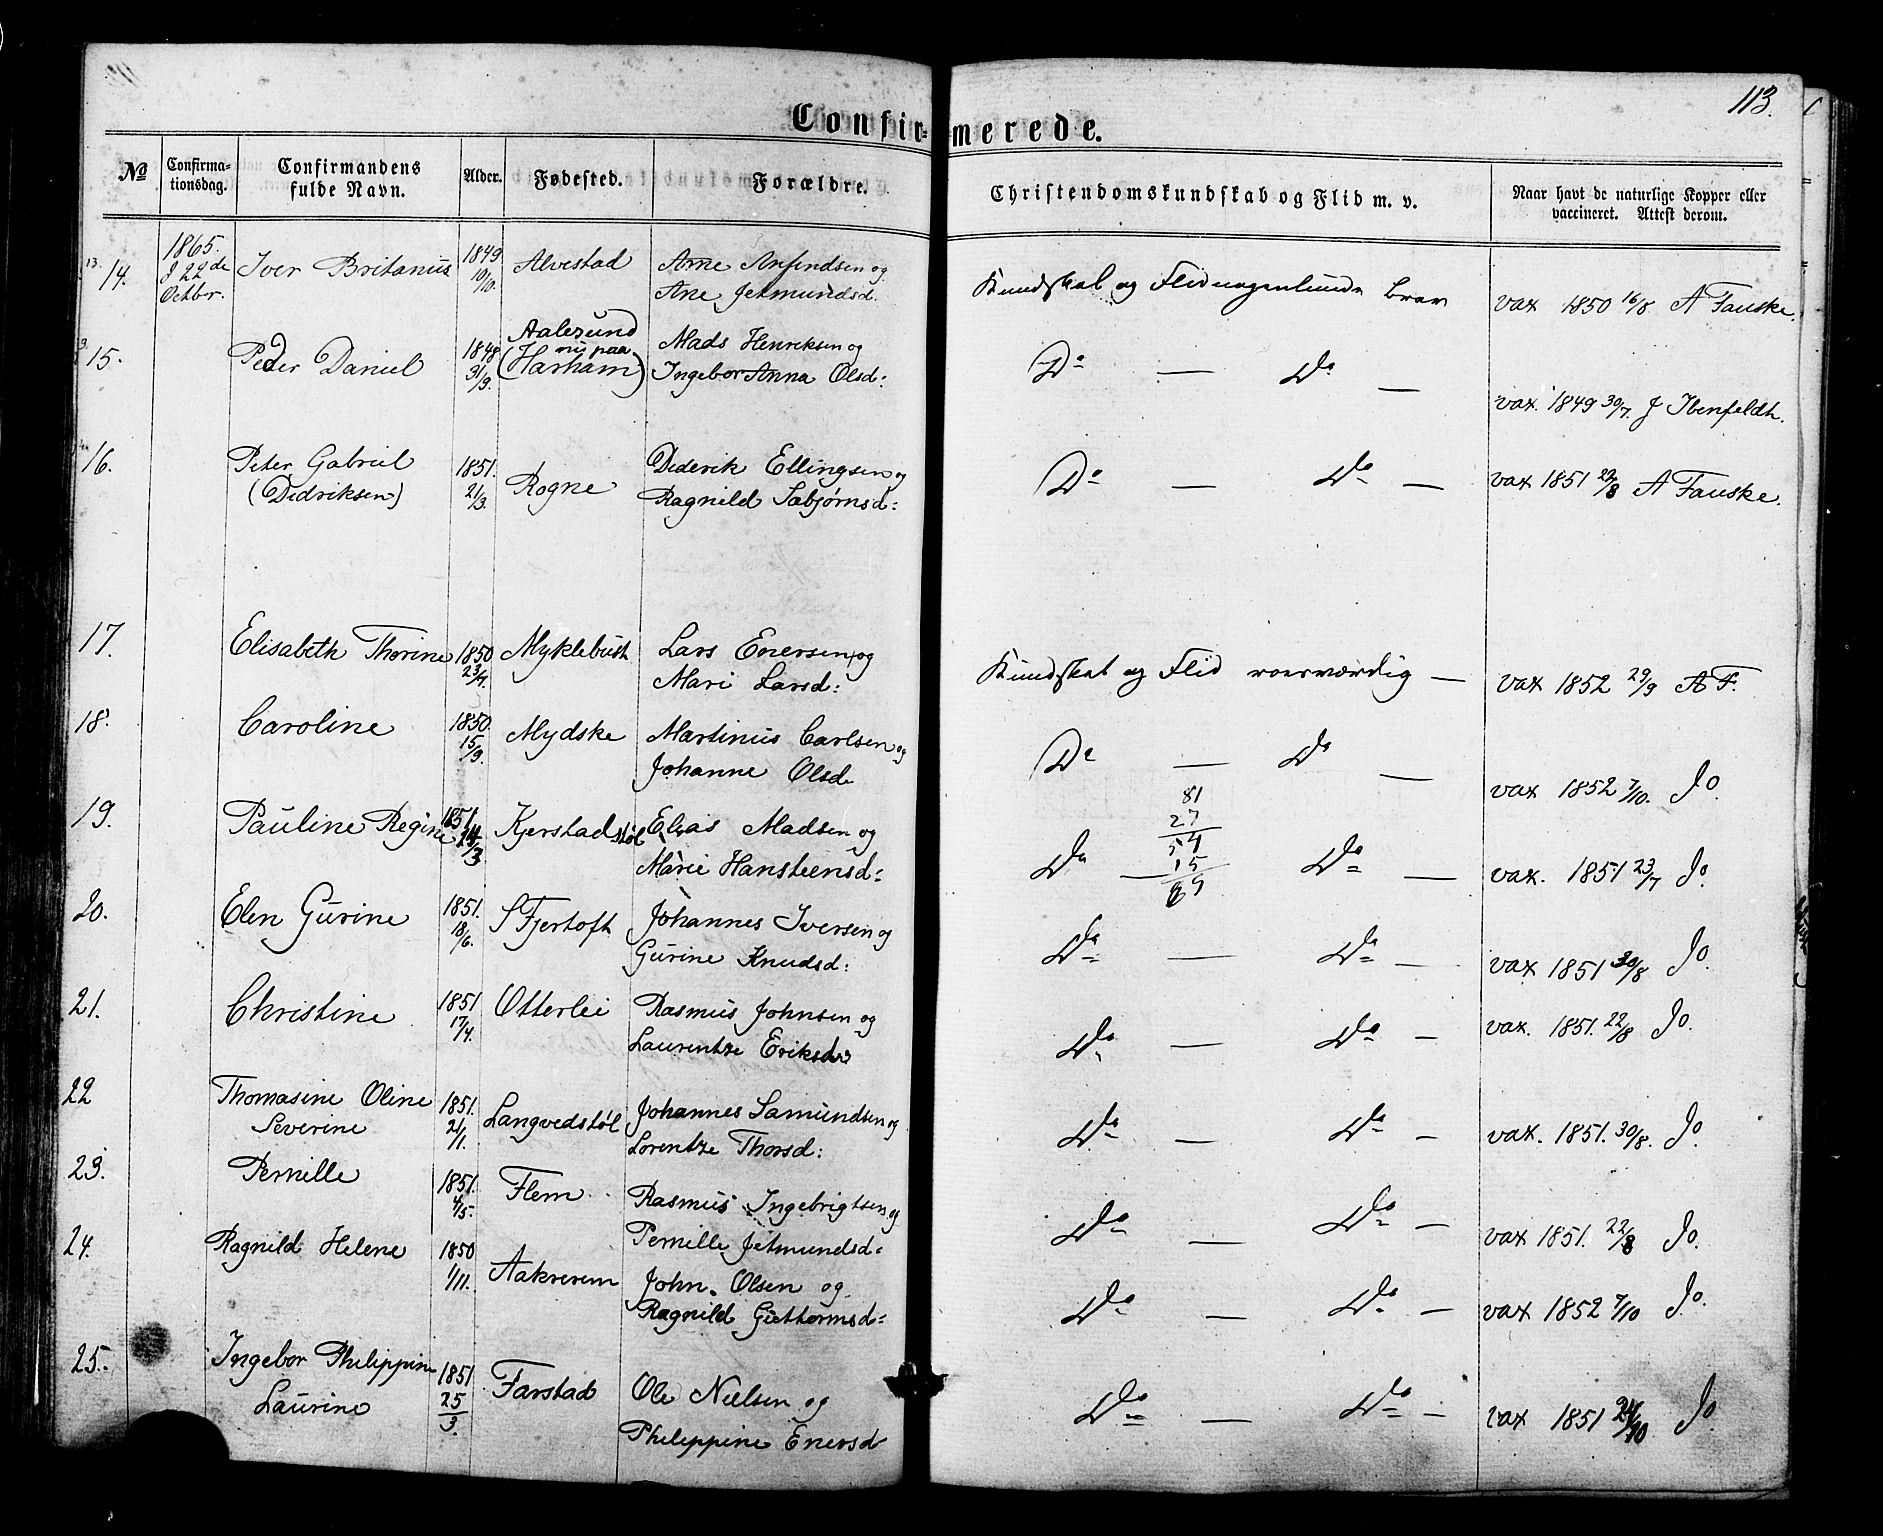 113.
Confir- merede.
No
Confirma-
tionsdag.
Confirmandens
fulde Navn.
Alder.
Fødested.
Forældre.
Christendomskundskab og Flid m. v.
Naar havt de naturlige Kopper eller
vaccineret. Attest derom.
13.
14. 1865. J 22de Octbr. Iver Britanus 1849 10/10. Alvestad Arne Anfindsen og
Ane Jetmundsd.
Kundskab og Flid nogenlunde brav vax 1850 16/8 A Fauske.
15. Peder Daniel 1848 31/9. Aalesund
(nu paa Harham)
Mads Henriksen og
Ingebor Anna Olsd:
Do — Do — vax. 1849 30/7. J Ibenfeldt.
16. Peter Gabriel
(Didriksen)
1851. 21/3. Rogne Diderik Ellingsen og
Ragnild Sæbjørnsd:
Do — Do — vax 1851 22/8 A Fauske.
17. Elisabeth Thorine 1850 23/4. Myklebust Lars Enersen og
Mari Larsd:
Kundskab og Flid roesværdig — vax 1852 29/9 A F.
18. Caroline 1850. 15/9. Mydske Martinus Carlsen og
Johanne Olsd
Do — Do — vax 1852 7/10. Jo.
81
27
54
15
69
19. Pauline Regine 1851. 24/3 Kjerstadstøl Elias Madsen og
Marie Hansteensd:
Do — Do — vax. 1851 23/7 Jo.
20. Elen Gurine 1851. 18/6. S Fjertoft Johannes Iversen og
Gurine Knudsd:
Do — Do — vax 1851 30/8 Jo.
21. Christine 1851 17/4. Otterlei Rasmus Johnsen og
Laurentze Eriksd:
Do — Do — vax. 1851. 22/8 Jo.
22 Thomasine Oline
Severine
1851. 21/1. Langvedstøl Johannes Samundsen og
Lorentze Thorsd:
Do — Do — vax. 1851. 30/8. Jo.
23. Pernille 1851. 4/5. Flem Rasmus Ingebrigtsen og
Pernille Jetmundsd:
Do — Do — vax 1851. 22/8 Jo.
24. Ragnild Helene 1850 1/11. Aakrerem John Olsen og
Ragnild Guttormsd:
Do — Do — vax 1852 7/10 Jo.
25. Ingebor Philippine
Laurine
1851 25/3. Farstad Ole Nielsen og
Philippine Enersd
Do — Do — vax 1851 24/10 Jo.